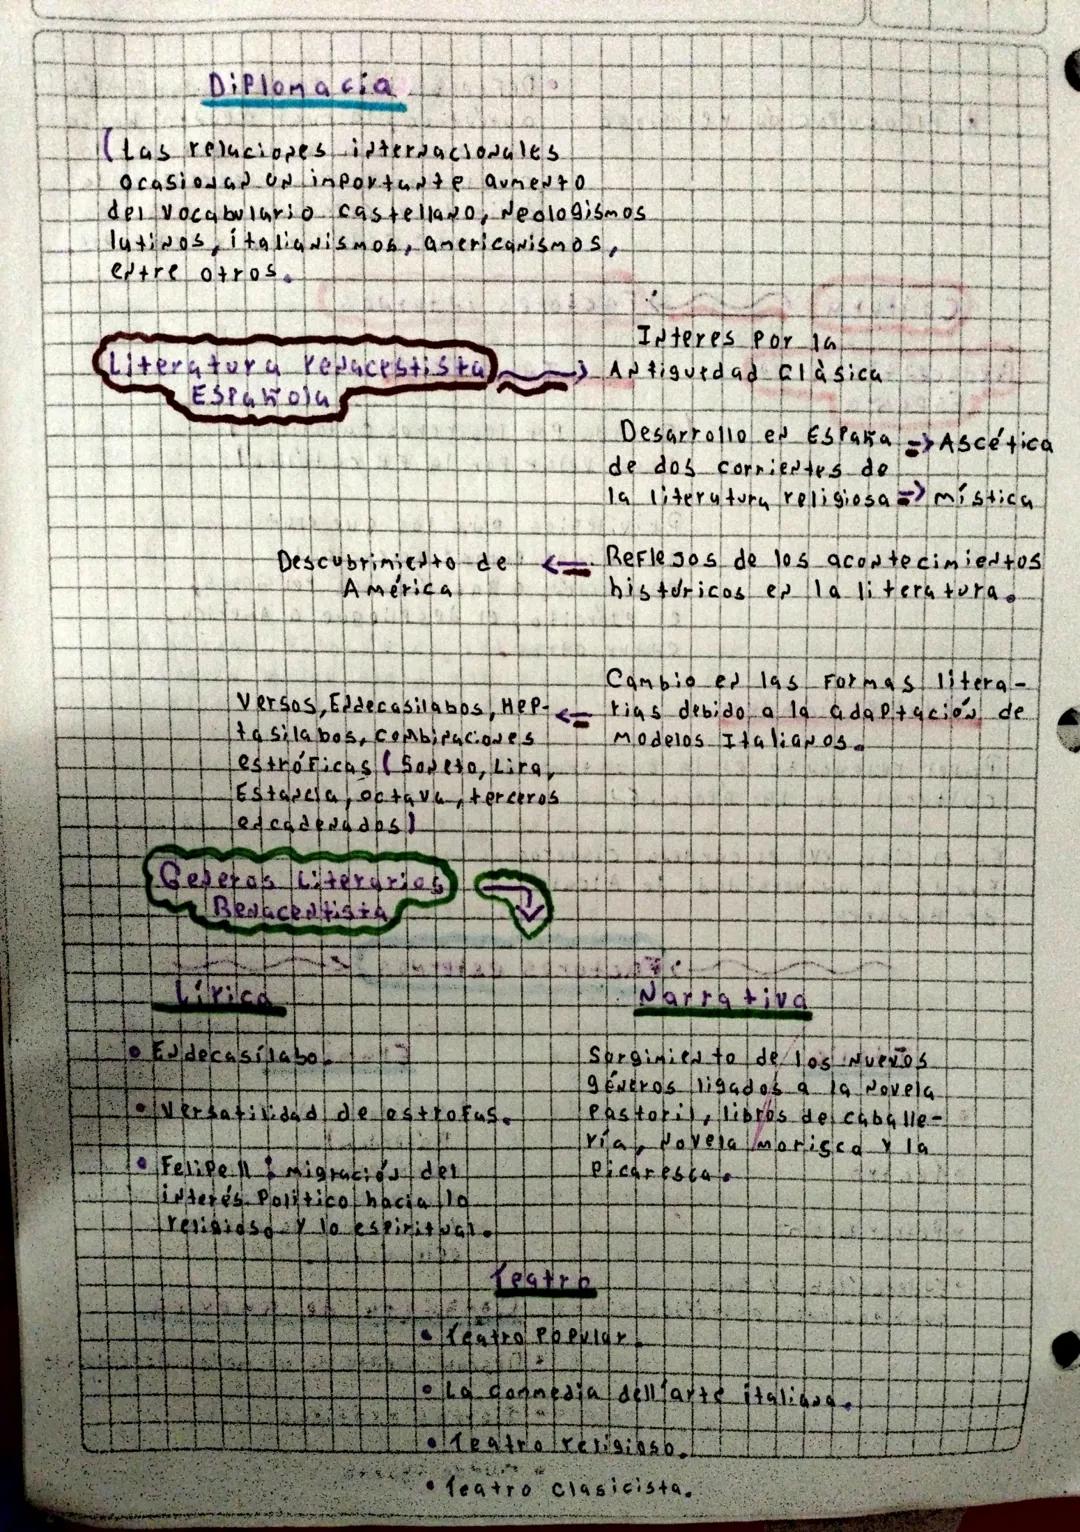 Diplomacia
(Las relaciones internacionales
ocasionan un importante aumento
del vocabulario castellano, neologismos
latinos, italianismos, americanismos,
entre otros.
Literatura renacestista
Española
Interes por la
Antiguedad Clàsica
Desarrollo en España => Ascética
de dos corrientes de
la literatura religiosa => mística
Reflejos de los acontecimientos
históricos en la literatura.
Descubrimiento de
América
Cambio en las formas litera-
rias debido a la adaptación de
modelos Italianos.
Versos, Endecasilabos, Hep-
tasilabos, combinaciones
estróficas (Soneto, Lira,
Estancia, octava, terceros
encadenados)
Generos Literarios
Renacentista
Lírica
• Endecasílabo.
• Versatilidad de estrofas.
• Felipe II: migración del
interés Político hacia lo
religioso y lo espiritual.
Narrativa
Sorgimiento de los nuevos
géneros ligados a la novela
Pastoril, libros de caballe-
ría, novela morisca y la
Picaresca.
Teatro
• Teatro Popular.
• La commedia dell'arte italiana.
• Teatro religioso.
• Teatro Clasicista.